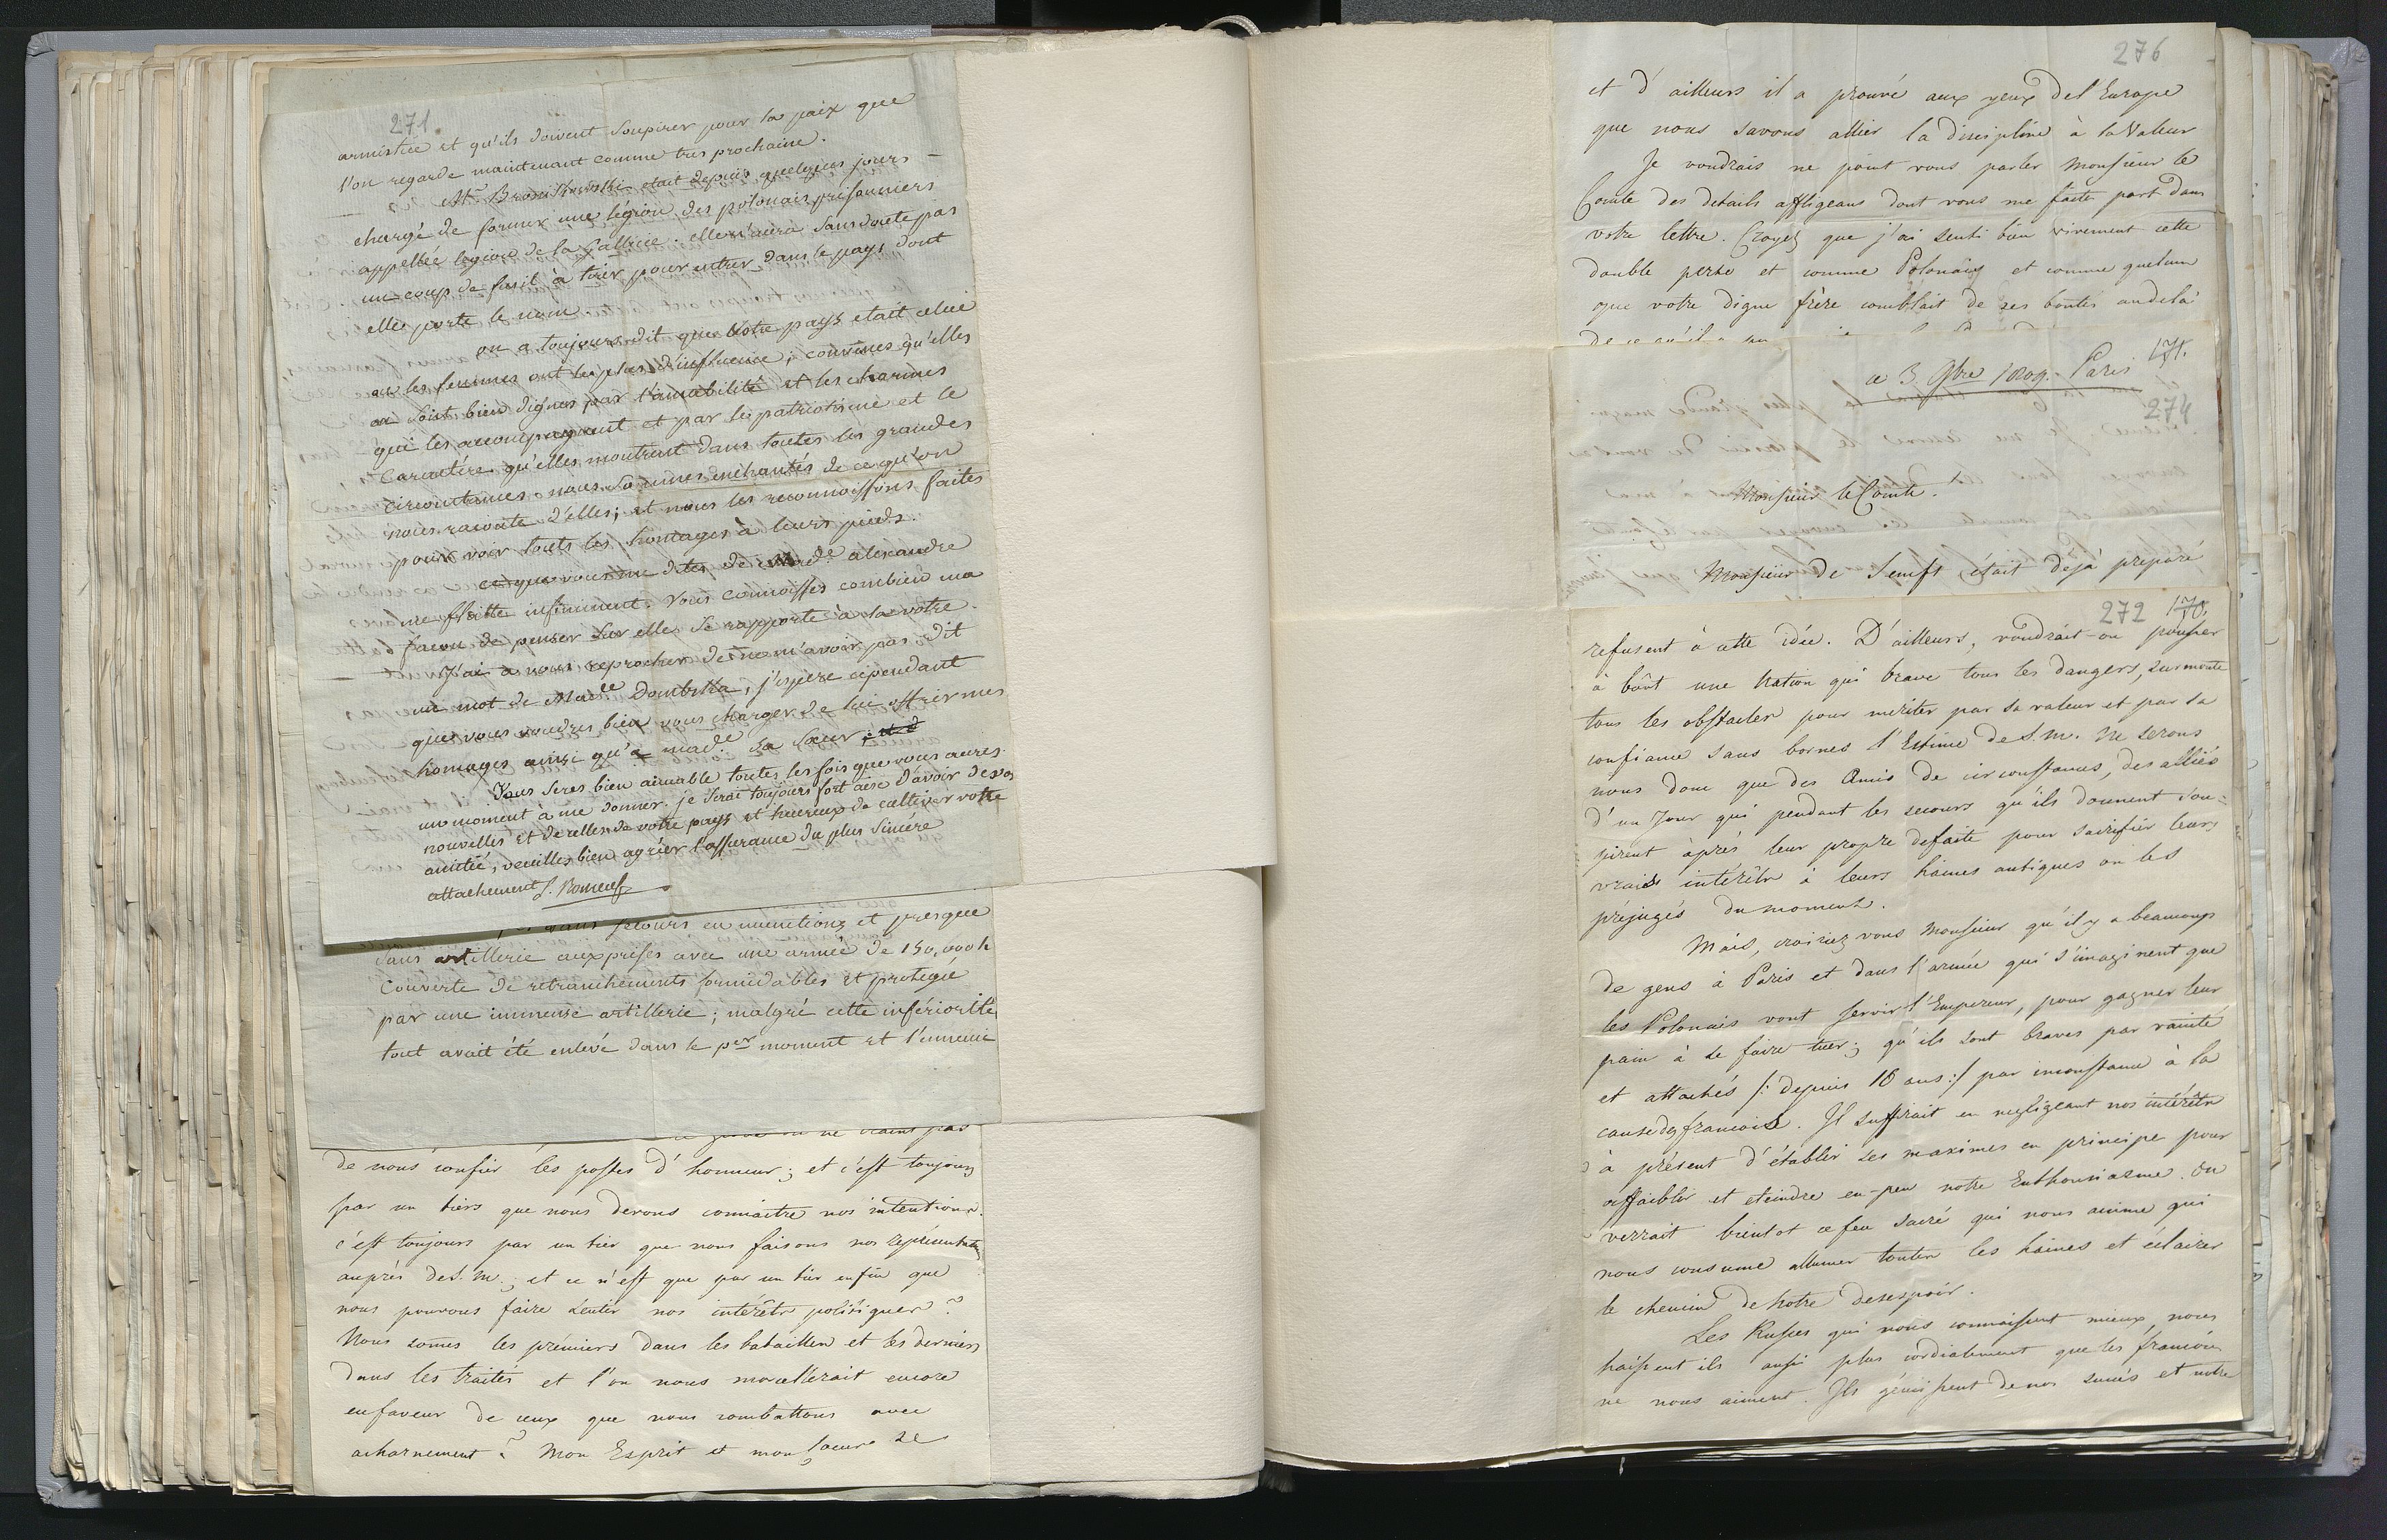 271
armistice et qu'ils doivent soupirer pour la paix que
l'on regarde maintenant comme tres prochaine.
Mr. Bronikowski etait depuis quelques jours
chargé de former une légion des polonais prisonniers
appellée legion de la Gallicie. elle n'aura sans doute pas
un coup de fusil à tirer pour entrer dans le pays dont
elle porte le nom.
on a toujours dit que Votre pays etait celui
ou les femmes ont le plus d'influence; convenes qu'elles
en sont bien dignes par l'amabilité et les charmes
qui les accompagnent et par le patriotisme et le
Caractére qu'elles montrent dans toutes les grandes
circonstances. nous sommes enchantés de ce qu'on
nous raconte d'elles; et nous les reconnoissons faites
pour voir touts les homages à leurs pieds.
ce que vous me dites de Made. alexandre
me flatte infiniment. Vous connoisses combien ma
façon de penser sur elle se rapporte à la votre.
J'ai à vous reprocher de ne m'avoir pas dit
un mot de Made Dombska, j'espère cependant
que vous voudres bien vous charger de lui offrir mes
homages ainsi qu'a made. sa soeur
Vous seres bien aimable toutes les fois que vous aures
un moment à me donner. je serai toujours fort aise d'avoir de vos
nouvelles et de celles de votre pays et heureux de cultiver votre
amitié, veuilles bien agréer l'assurance du plus sincére
attachement J. Romeuf
sans secours en munitions et presque
sans artillerie aux prises avec une armée de 150,000 h
Couverte de retranchements formidables et protegée
par une immense artillerie; malgré cette infériorité
tout avait été enlevé dans le per moment et l'ennemi
ne craint pas
de nous confier les postes d'honneur; et c'est toujours
par un tiers que nous devons connaitre nos intentions.
c'est toujours par un tier que nous faisons nos représentations
auprès de S. M.; et ce n'est que par un tier enfin que
nous pouvons faire sentir nos intérêts politiques?
Nous somes les prémiers dans les batailles et les derniers
dans les traités et l'on nous morcellérait encore
en faveur de ceux que nous combattons avec
acharnement? Mon Esprit et mon Coeur se
276
et d'ailleurs il a prouvé aux yeux de l'Europe
que nous savons allier la discipline à la Valeur
Je voudrais ne point vous parler Monsieur le
Comte des details affligeans dont vous me faites part dans
votre lettre. Croyez que j'ai senti bien vivement cette
double perte et comme Polonais et comme quelcun
que votre digne frère comblait de ses bontés audela
171.
ce 3 9bre 1809. Paris
274
Monsieur le Comte.
Monsieur de Senfft était déjà préparé
272 170
refusent à cette idée. D'ailleurs, voudrait-on pousser
à bout une Nation qui brave tous les dangers, surmonte
tous les obstacles pour mériter par sa valeur et par sa
confiance sans bornes l'Estime de S. M. Ne serons
nous donc que des Amis de circonstances, des alliés
d'un Jour qui pendant les secours qu'ils donnent sou=
pirent après leur propre defaite pour sacrifier leurs
vrais intérêts à leurs haines antiques ou les
préjugés du moment.
Mais, croiriez vous Monsieur qu'il y a beaucoup
de gens à Paris et dans l'armée qui s'imaginent que
les Polonais vont servir l'Empereur, pour gagner leur
pain à se faire tuer; qu'ils sont braves par vanité
et attachés /: depuis 16 ans :/ par inconstance à la
cause des francois. Il suffirait en negligeant nos intérêts
à présent d'établir ses maximes en principe pour
affaiblir et eteindre en-peu notre Enthousiasme. On
verrait bientot ce feu sacré qui nous anime qui
nous consume allumer toutes les haines et éclairer
le chemin de notre desespoir.
Les Russes qui nous connaissent mieux, nous
haissent ils aussi plus cordialement que les francois
ne nous aiment. Ils gémissent de nos succés et notre